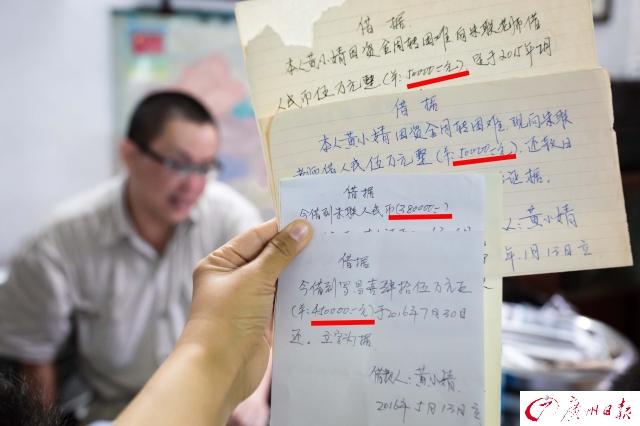 借 据
本人黄小婧因资金周转困难,向朱联老师借
人民币伍万元整(¥:50000.-元)
于2015年
借 据
本人黄小婧因资金周转困难,现向朱联
老师借人民伍万元整(¥:50000.-元),还款日
据.
人:黄小婧
年1月13日立
借据
今借到朱联人民币(380000.-)
借据
今借到
肆拾伍万元正
(¥:450000.-元)于2016年7月30日
还。立字为据
借款人:黄小婧
2016年5月13日立
廣州日報